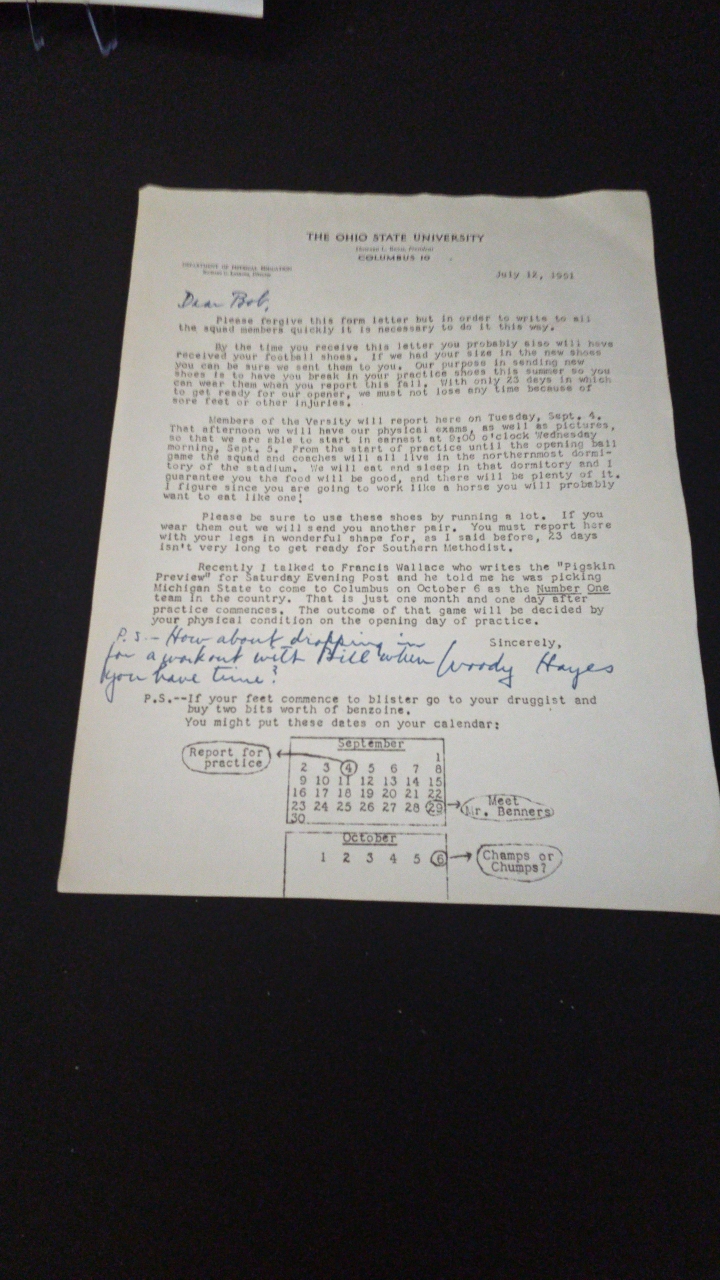 THE OHIO STATE UNIVERSITY
Howard L. Bevis, President
COLUMBUS 10
DEPARTMENT OF PHYSICAL EDUCATION
July 12, 1951
Dear Bob,
Please forgive this form letter but in order to write to all
the squad members quickly it is necessary to do it this way.
By the time you receive this letter you probably also will have
received your football shoes. If we had your size in the new shoes
you can be sure we sent them to you. Our purpose in sending new
shoes is to have you break in your practice shoes this summer so you
can wear them when you report this fall. With only 23 days in which
to get ready for our opener, we must not lose any time because of
sore feet or other injuries.
Members of the Versity will report here on Tuesday, Sept. 4.
That afternoon we will have our physical exams, as well as pictures,
so that we are able to start in earnest at 9:00 o'clock Wednesday
morning, Sept. 5. From the start of practice until the opening ball
game the squad and coaches will all live in the northernmost dormi-
tory of the stadium. We will eat and sleep in that dormitory and I
guarantee you the food will be good, and there will be plenty of it.
I figure since you are going to work like a horse you will probably
want to eat like one!
Please be sure to use these shoes by running a lot. If you
wear them out we will send you another pair. You must report here
with your legs in wonderful shape for, as I said before, 23 days
isn't very long to get ready for Southern Methodist.
Recently I talked to Francis Wallace who writes the "Pigskin
Preview" for Saturday Evening Post and he told me he was picking
Michigan State to come to Columbus on October 6 as the Number One
team in the country. That is just one month and one day after
practice commences. The outcome of that game will be decided by
your physical condition on the opening day of practice.
Sincerely,
Woody Hayes
P.S.- How about dropping in
for a workout with Bill when
you have time?
P.S.--If your feet commence to blister go to your druggist and
buy two bits worth of benzoine.
You might put these dates on your calendar:
September
Report for
practice
1
2 3 4 5 6 7 8
9 10 11 12 13 14 15
16 17 18 19 20 21 22
23 24 25 26 27 28 29
30
Meet
Mr. Benners
October
1 2 3 4 5 6
Champs or
Chumps?